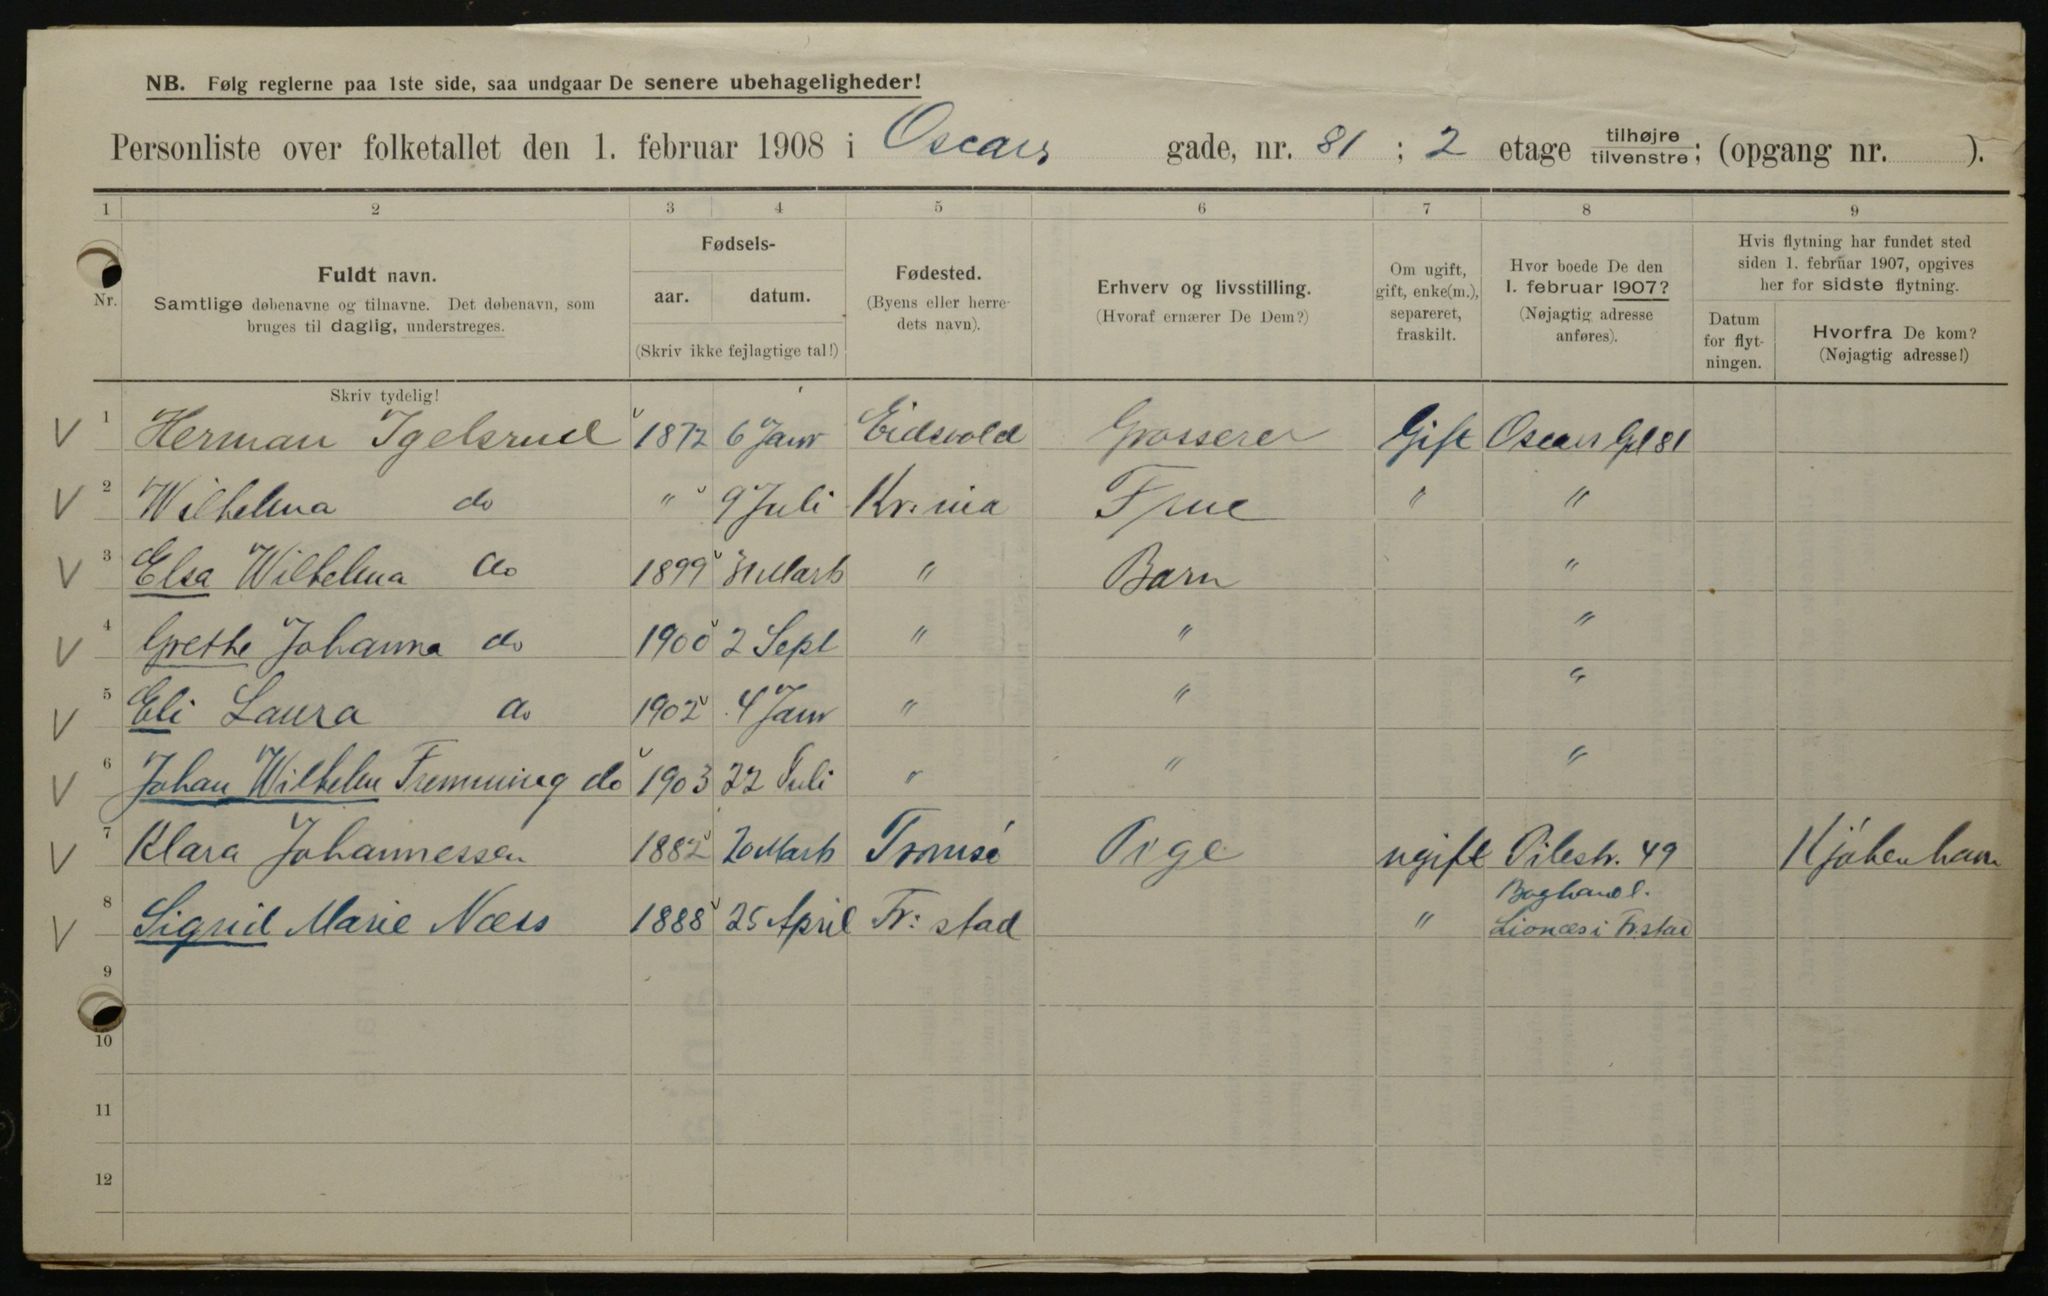 NB. Følg reglerne paa 1ste side, saa undgaar De senere ubehageligheder!
Personliste over folketallet den 1. februar 1908 i Oscars gade, nr. 81 ; 2 etage tilhøjre tilvenstre; (opgang nr. ).
1 2 3 4 5 6 7 8 9
Nr.
Fuldt navn.
Samtlige døbenavne og tilnavne. Det døbenavn, som
bruges til daglig, understreges.
Fødsels-
aar. datum.
(Skriv ikke fejlagtige tal!)
Fødested.
(Byens eller herre-
dets navn).
Erhverv og livsstilling.
(Hvoraf ernærer De Dem?)
Om ugift,
gift, enke(m.),
separeret,
fraskilt.
Hvor boede De den
1. februar 1907?
(Nøjagtig adresse
anføres).
Hvis flytning har fundet sted
siden 1. februar 1907, opgives
her for sidste flytning.
Datum
for flyt-
ningen.
Hvorfra De kom?
(Nøjagtig adresse!)
Skriv tydelig!
V 1 Herman Igelsrud 1872 6 Janr Eidsvold Grosserer Gift Oscars Gd 81
V 2 Wilhelma do " 9 Juli Kr:nia Frue " "
V 3 Elsa Wilhelma do 1899 31 Marts " Barn "
V 4 Grethe Johanna do 1900 2 Sept " " "
V 5 Eli Laura do 1902 4 Janr " " "
V 6 Johan Wilhelm Fremming do 1903 22 Juli " " "
V 7 Klara Johannessen 1882 20 Marts Tromsö Pige ugift Pilestr. 49 Kjöbenhavn
V 8 Sigrid Marie Næss 1888 25 April Fr: stad " Boghandl.
Lionæs i Fr.stad
9
10
11
12